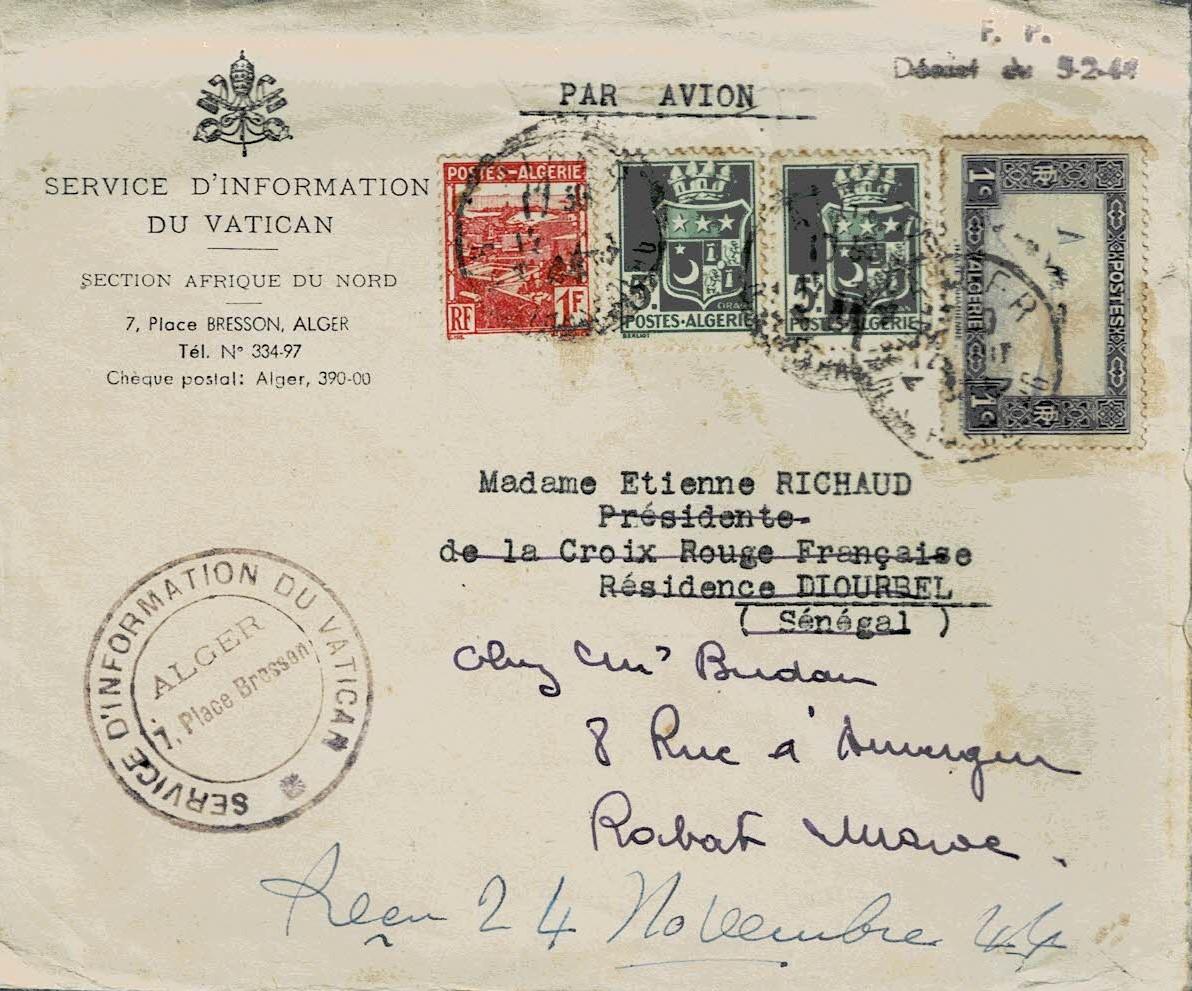 F. P.
PAR AVION
SERVICE D'INFORMATION
DU VATICAN
SECTION AFRIQUE DU NORD
7, Place BRESSON, ALGER
Tél. N° 334-97
Chèque postal: Alger, 390-00
POSTES-ALGERIE
RF 1F
5F
ORAN
POSTES-ALGERIE
5F
POSTES-ALGERIE
1c RF
ALGERIE
POSTES
1c RF
Madame Etienne RICHAUD
Présidente
de la Croix Rouge Française
Résidence DIOURBEL
( Sénégal )
Chez Mr Budan
8 Rue d'Auvergne
Rabat Maroc.
SERVICE D'INFORMATION DU VATICAN
ALGER
7, Place Bresson
Reçu 24 Novembre 44